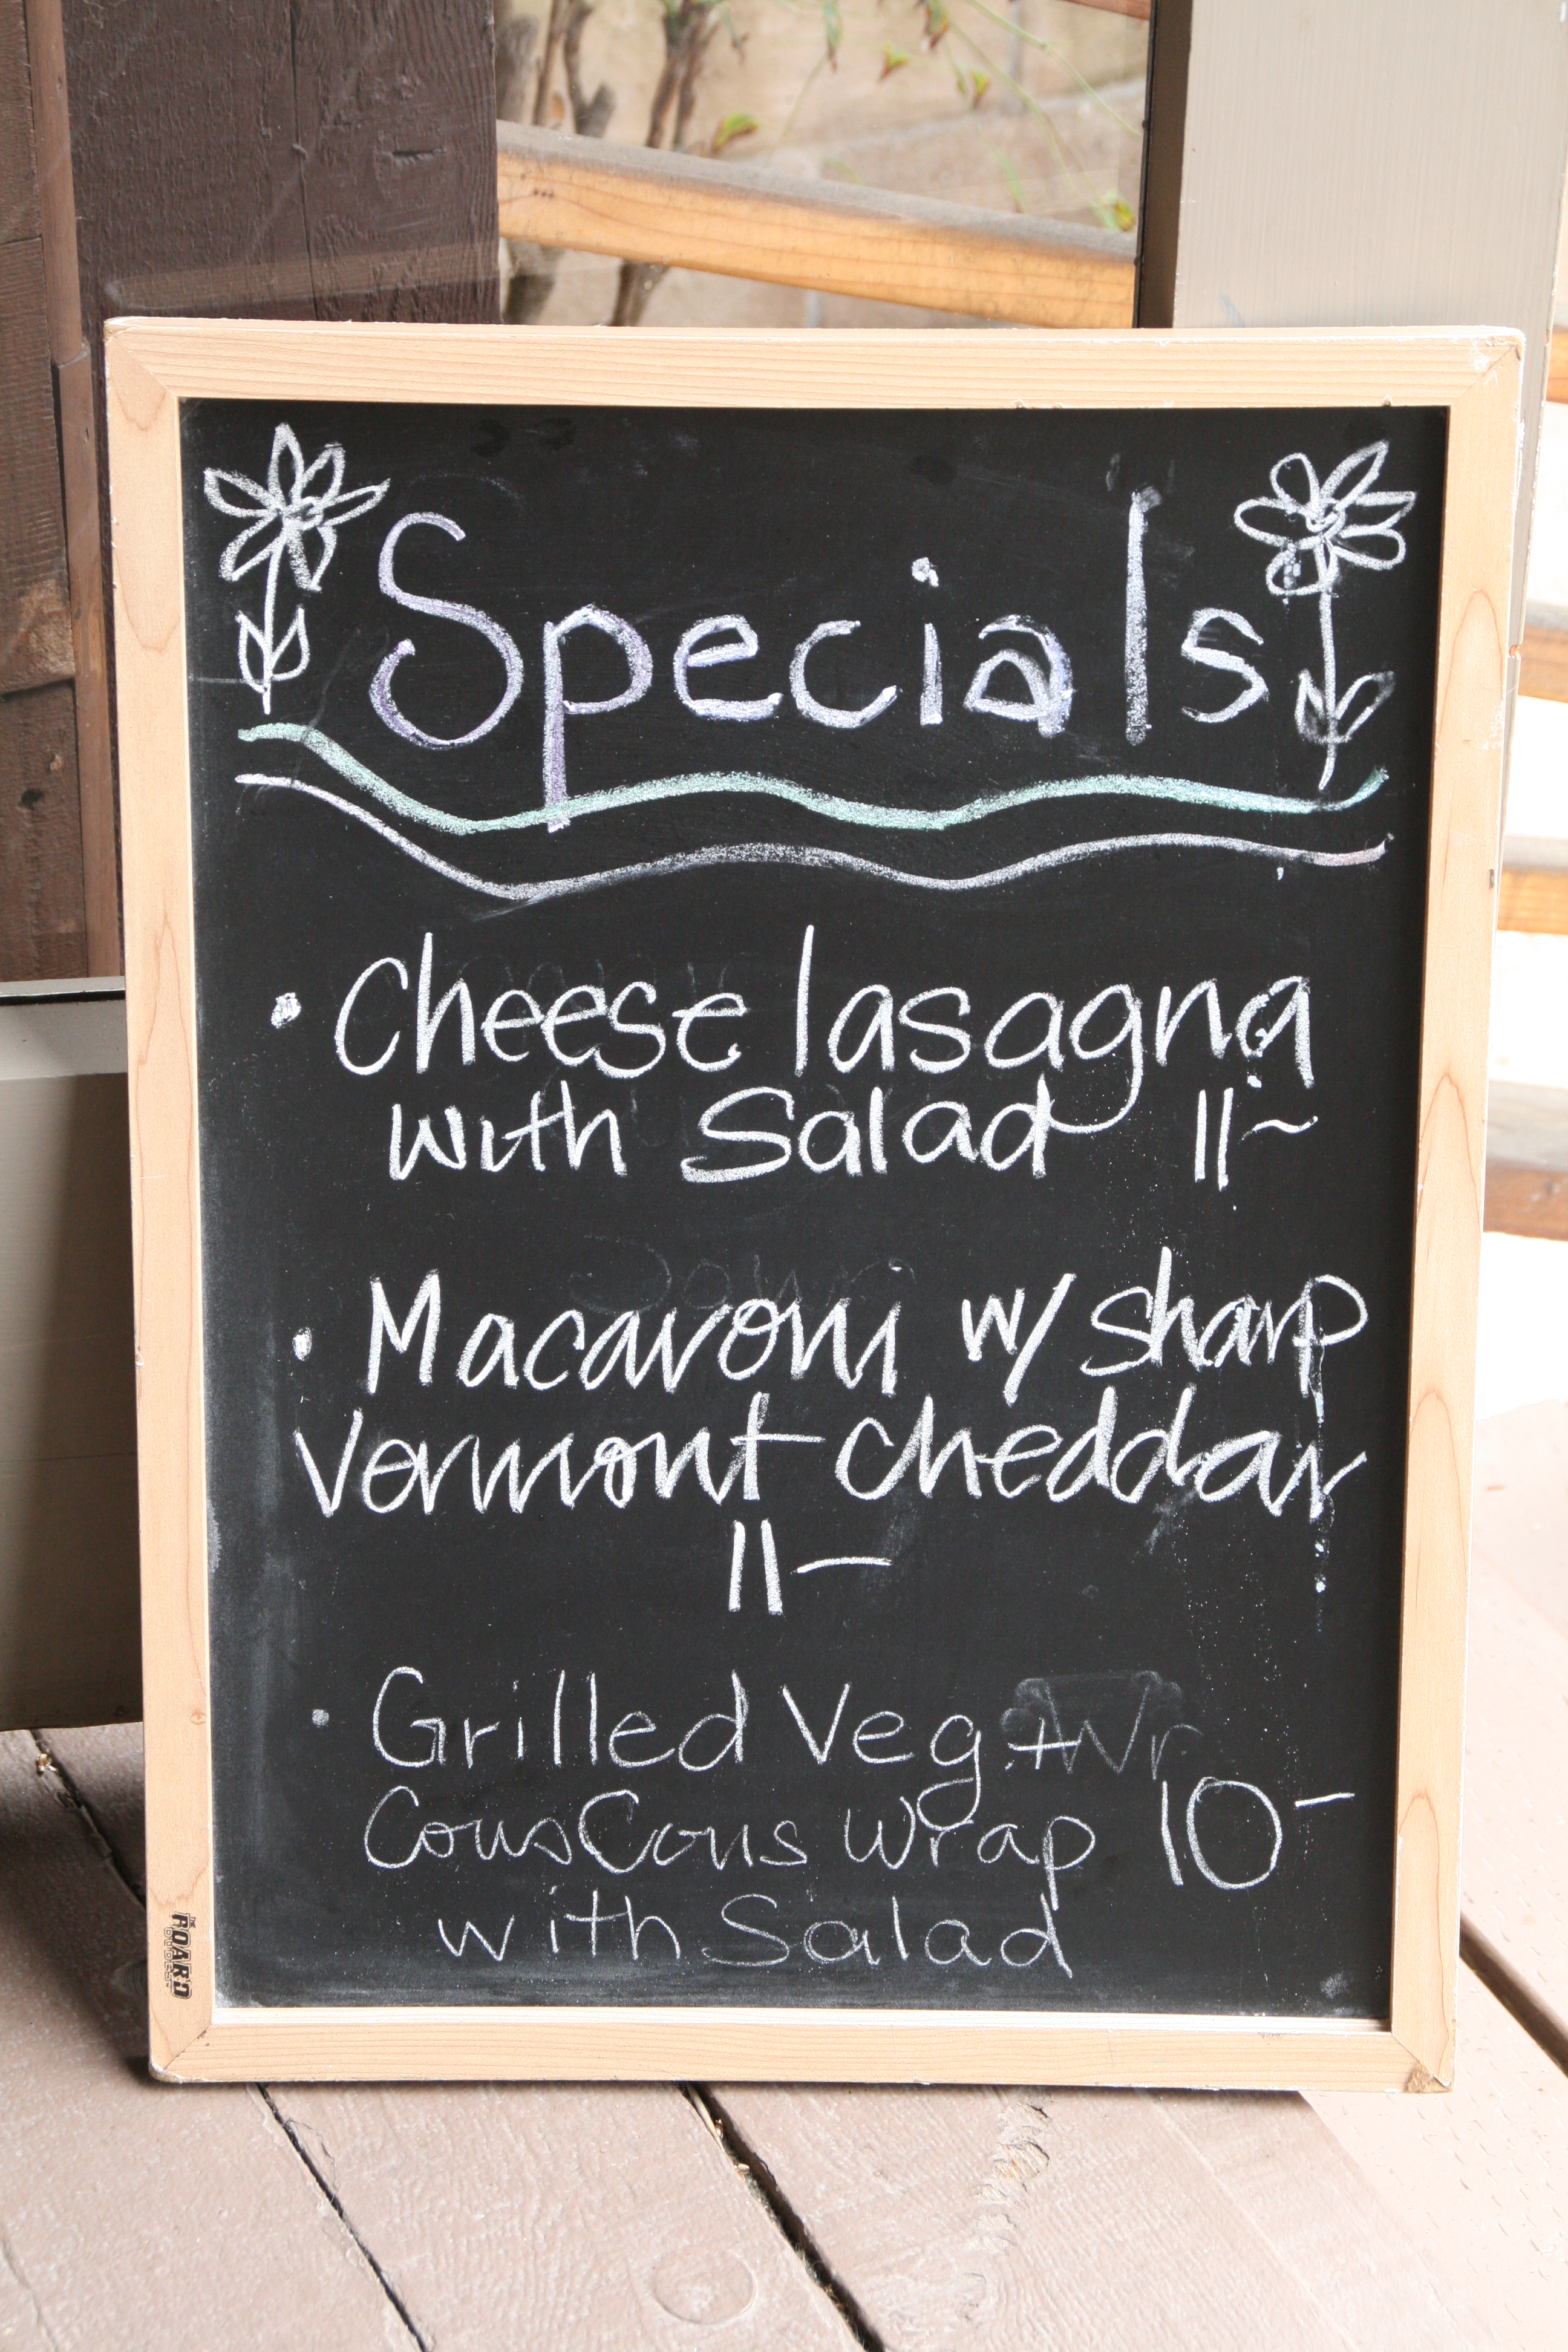 Specials
• Cheese lasagna
with Salad 11~
• Macaroni w/ sharp
Vermont Cheddar
11-
• Grilled Veg +
CousCous Wrap 10-
with Salad